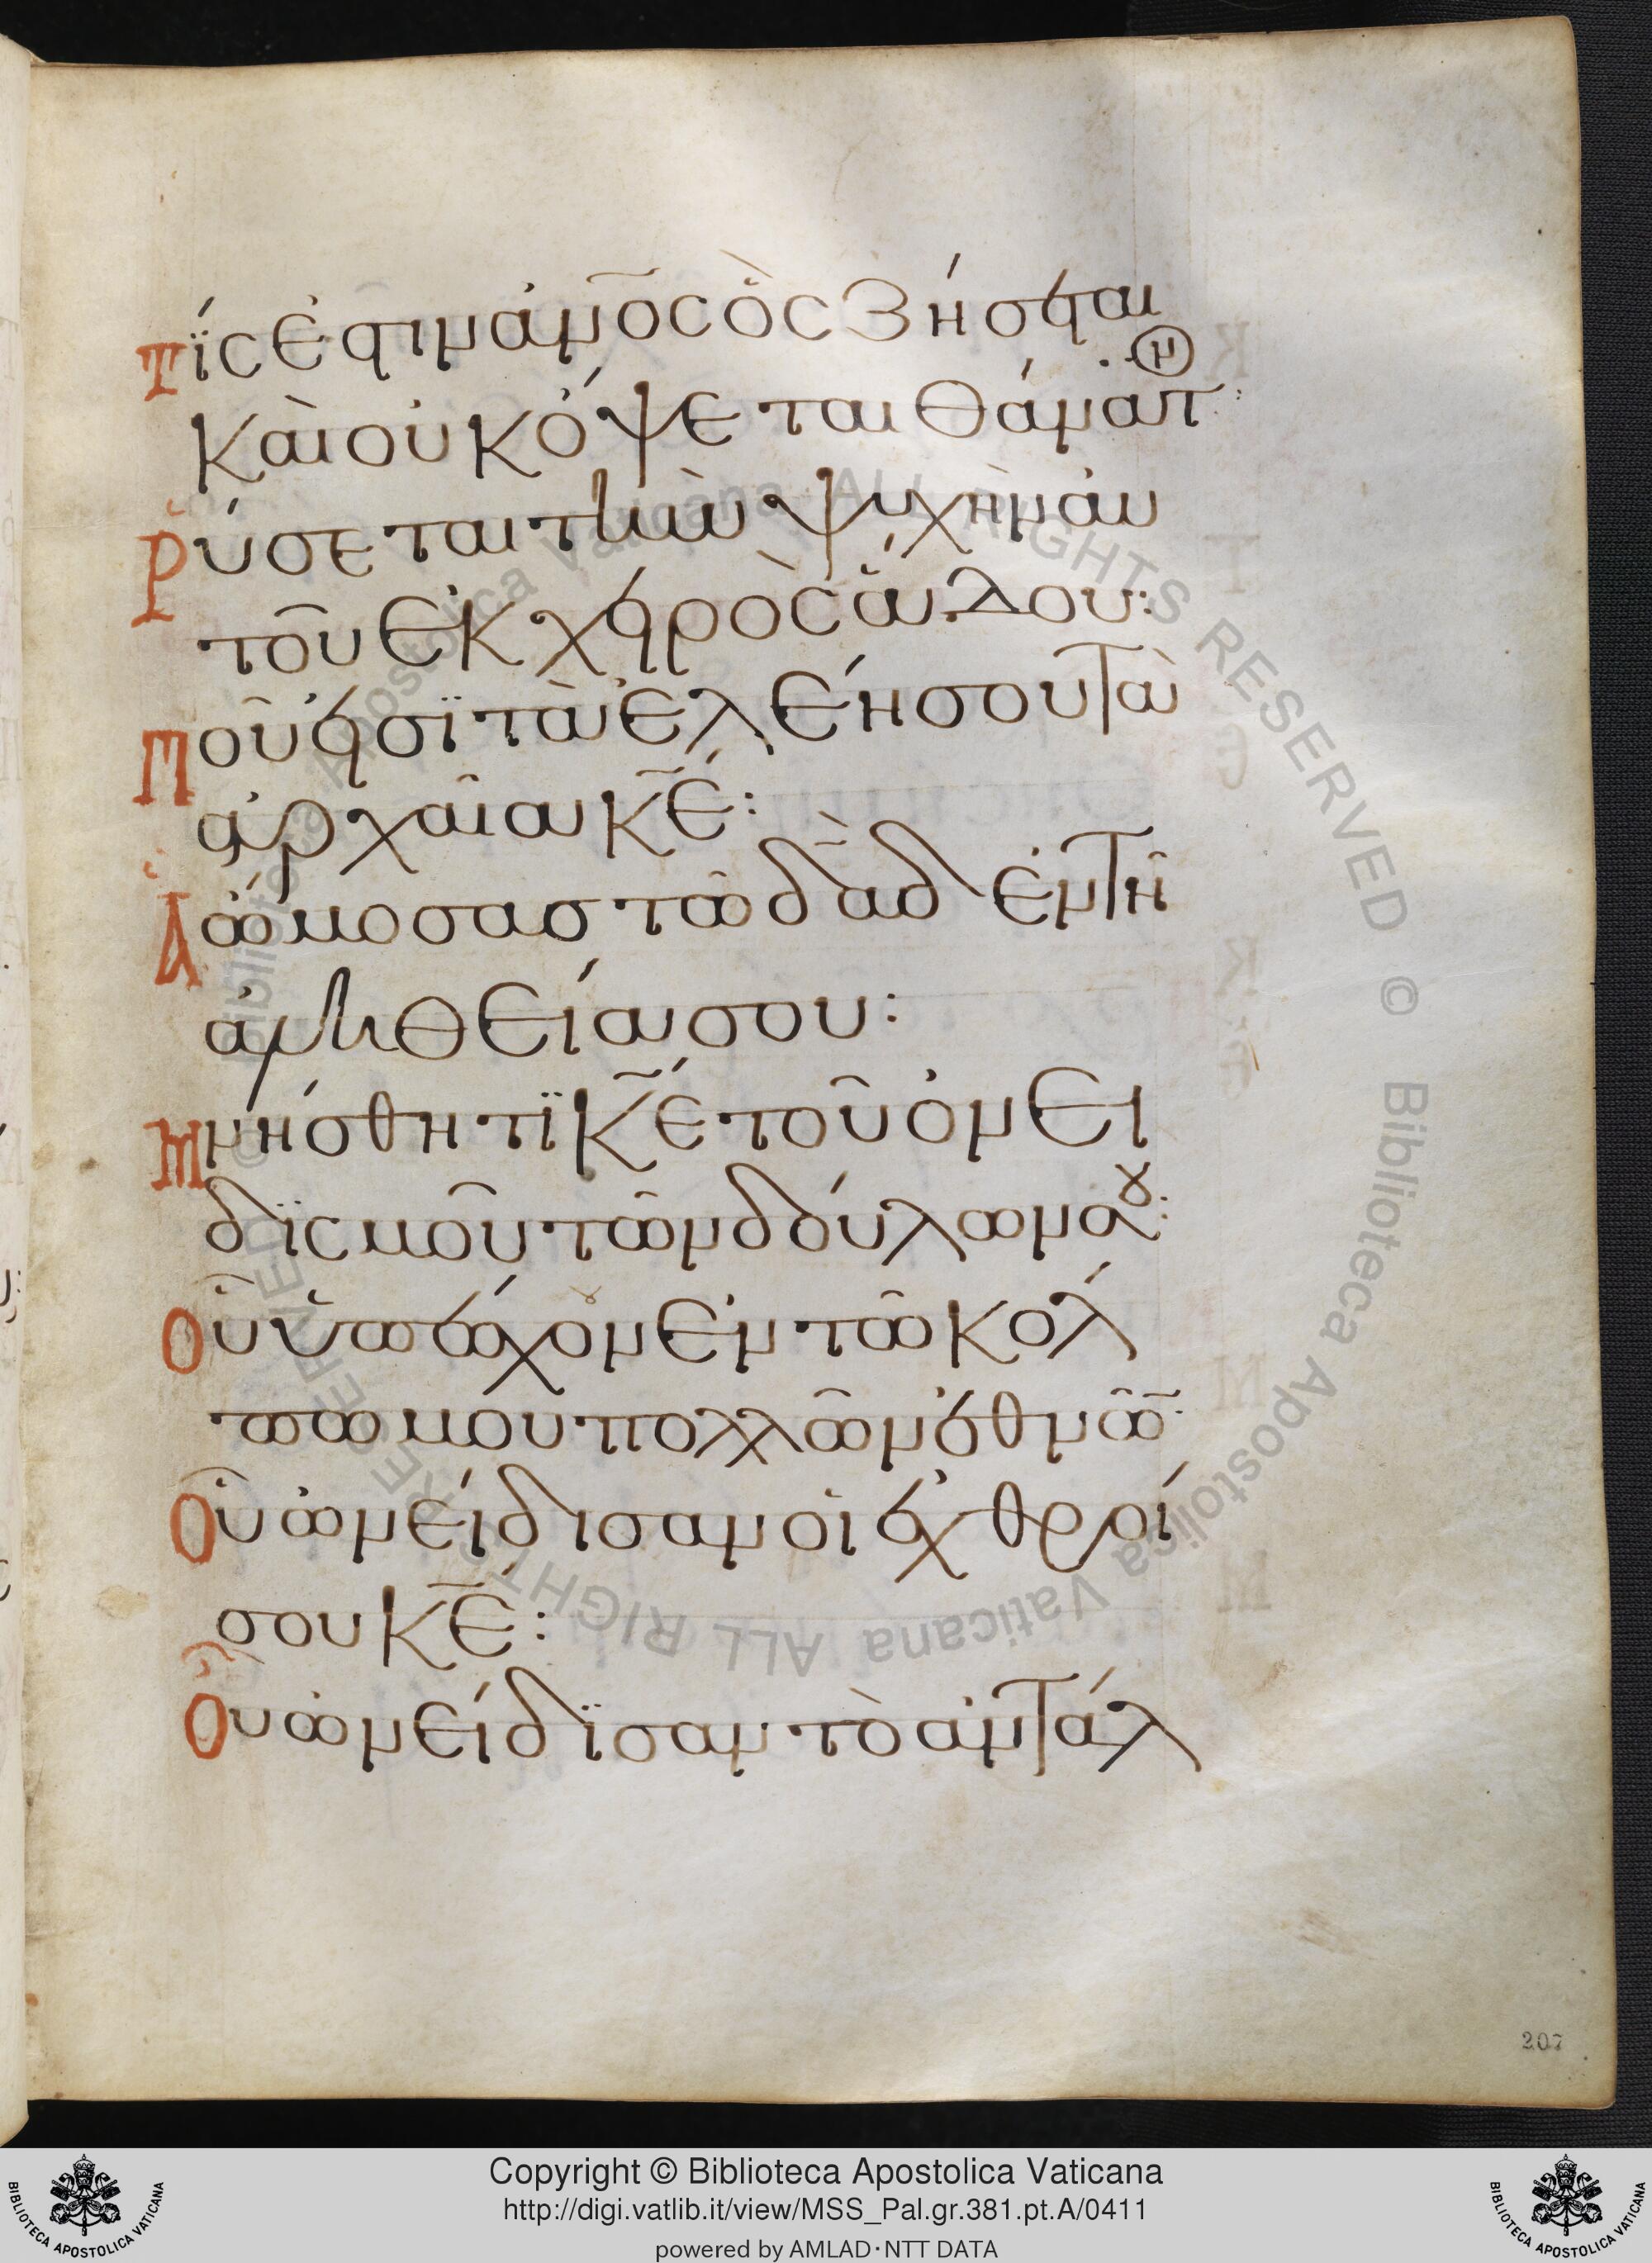 Τίς ἐστιν ἄν̅ο̅ς ὃς ζήσεται
καὶ οὐκ ὄψεται θάνατον:
Ῥύσεται τὴν ψυχὴν αὐ
τοῦ ἐκ χειρὸς ἅδου:
Ποῦ εἰσϊ τὰ ἐλέη σου τὰ
ἀρχαῖα κ̅ε̅:
Ἃ ὤμοσας τῶ δα̅δ̅ ἐν τῆ
ἀληθεία σου:
Μνήσθητϊ κ̅ε̅ τοῦ ὀνει
δϊσμοῦ τῶν δούλων σου:
Οὗ ὑπέσχον ἐν τῶ κόλ
πω μου πολλῶν ἐθνῶν:
Οὗ ὠνείδισαν οἱ ἐχθροί
σου κ̅ε̅:
Οὗ ὠνείδϊσαν τὸ ἀντάλ
207
Copyright © Biblioteca Apostolica Vaticana
http://digi.vatlib.it/view/MSS_Pal.gr.381.pt.A/0411
powered by AMLAD·NTT DATA
BIBLIOTECA APOSTOLICA VATICANA
BIBLIOTECA APOSTOLICA VATICANA
© Biblioteca Apostolica Vaticana ALL RIGHTS RESERVED © Biblioteca Apostolica Vaticana ALL RIGHTS RESERVED